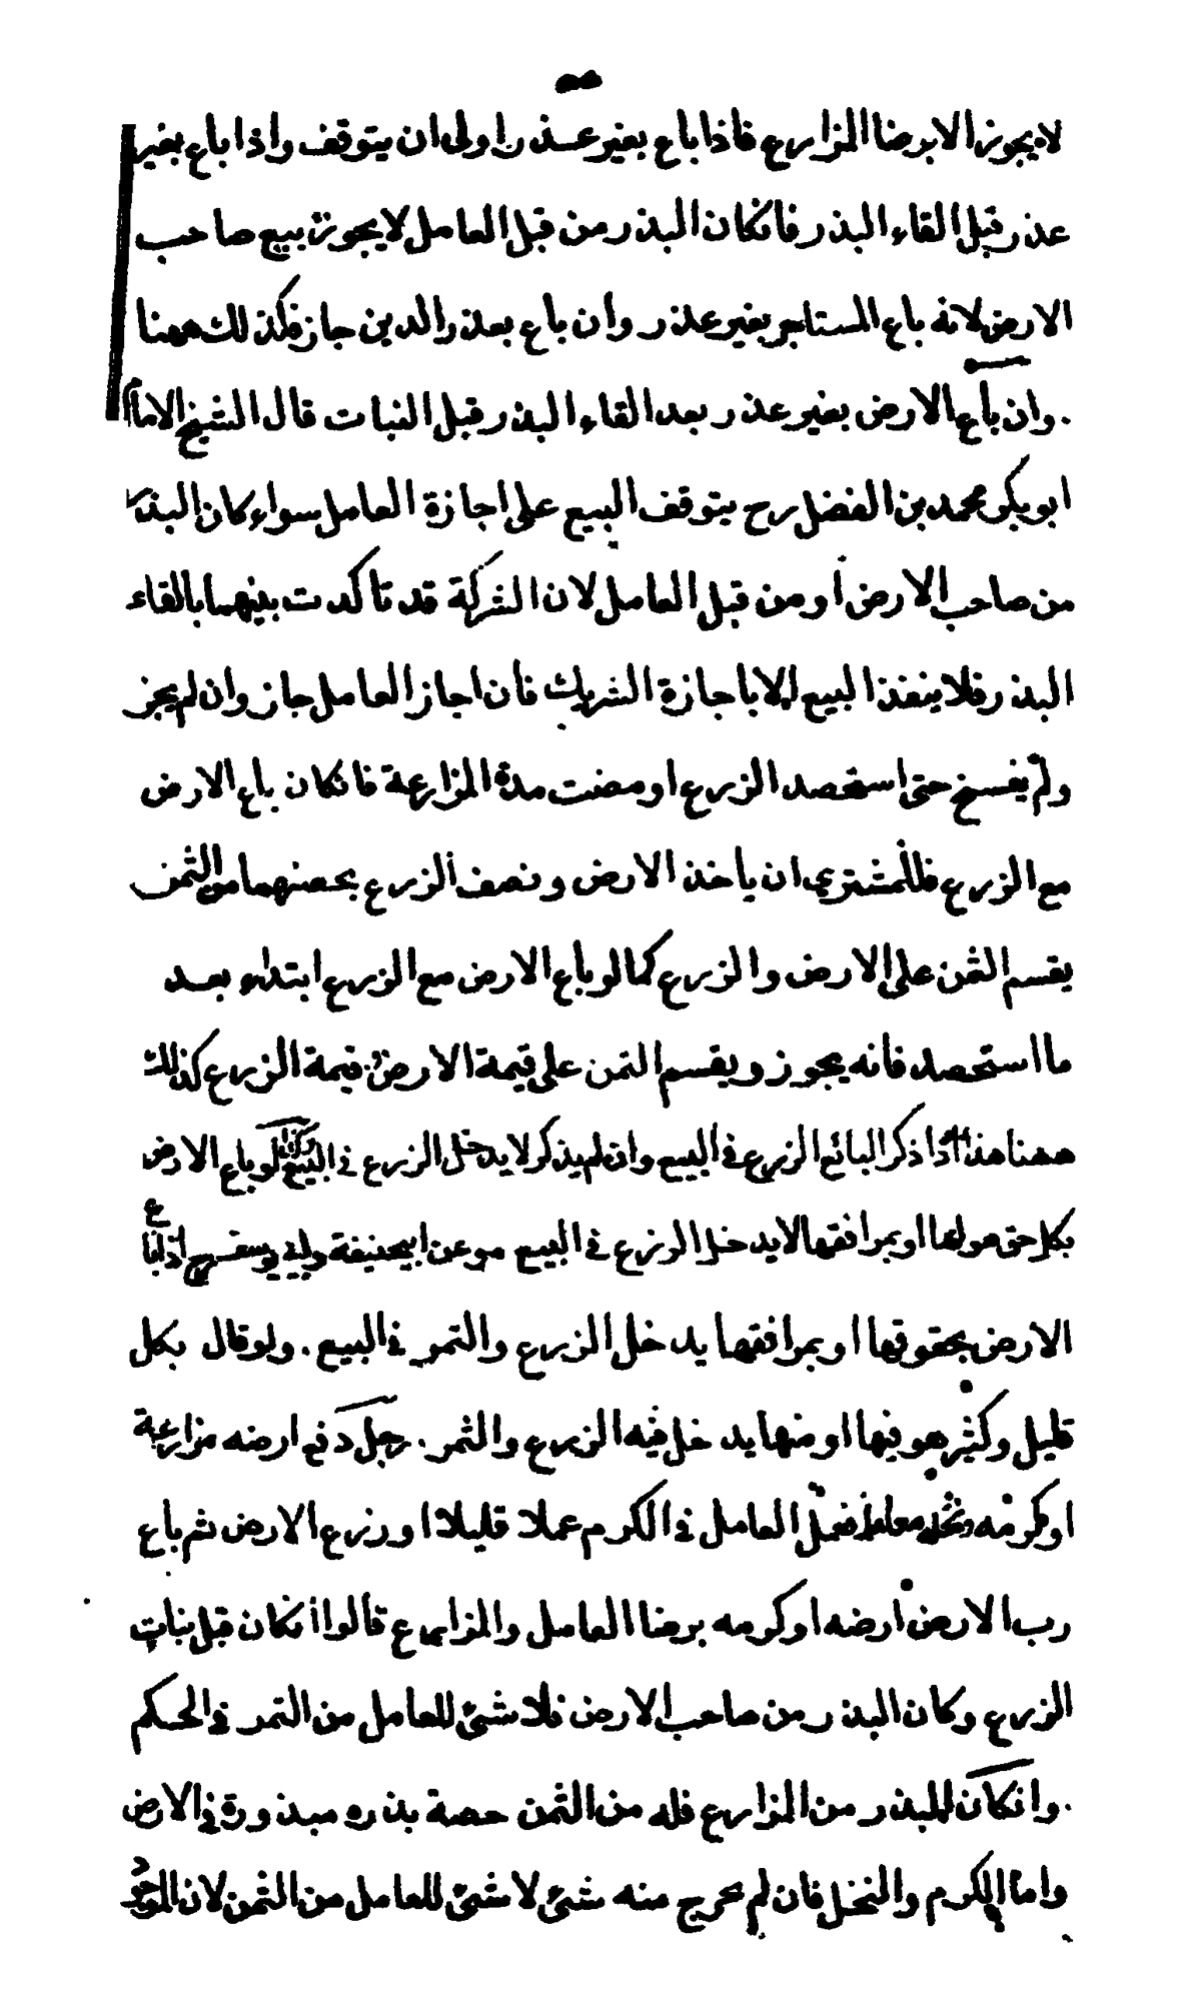 لا يجوز الا برضا المزارع فاذا باع بغير عذر اولى ان يتوقف واذا باع بغير
عذر قبل القاء البذر فانكان البذر من قبل العامل لا يجوز بيع صاحب
الارض لانه باع المستاجر بغير عذر وان باع بعذر الدين جاز فكذلك ههنا
. وان باع الارض بغير عذر بعد القاء البذر قبل النبات قال الشيخ الامام
ابو بكر محمد بن الفضل رح يتوقف البيع على اجازة العامل سواء كان البذر
من صاحب الارض او من قبل العامل لان الشركة قد تاكدت بينهما بالقاء
البذر فلا ينفذ البيع الا باجازة الشريك فان اجاز العامل جاز وان لم يجز
ولم يفسخ حتى استحصد الزرع او مضت مدة المزارعة فانكان باع الارض
مع الزرع فللمشترى ان ياخذ الارض ونصف الزرع بحصتهما من الثمن
يقسم الثمن على الارض والزرع كما لو باع الارض مع الزرع ابتداء بعد
ما استحصد فانه يجوز ويقسم الثمن على قيمة الارض وقيمة الزرع كذلك
ههنا هذا اذا ذكر البائع الزرع في البيع وان لم يذكر لا يدخل الزرع في البيع وكذا لو باع الارض
بكل حق هو لها او بمرافقها لا يدخل الزرع في البيع هو عن ابيحنيفة وابي يوسف رح اذا باع
الارض بحقوقها او بمرافقها يدخل الزرع والثمر في البيع . ولو قال بكل
قليل وكثير هو فيها او منها يدخل فيه الزرع والثمر . رجل دفع ارضه مزارعة
او كرمه ونخله معاملة فعمل العامل في الكرم عملا قليلا او زرع الارض ثم باع
رب الارض ارضه او كرمه برضا العامل والمزارع قالوا انكان قبل نبات
الزرع وكان البذر من صاحب الارض فلا شئ للعامل من الثمر في الحكم
. وانكان البذر من المزارع فله من الثمن حصة بذره مبذورة في الارض
واما الكرم والنخل فان لم يخرج منه شئ لا شئ للعامل من الثمن لان الموجود